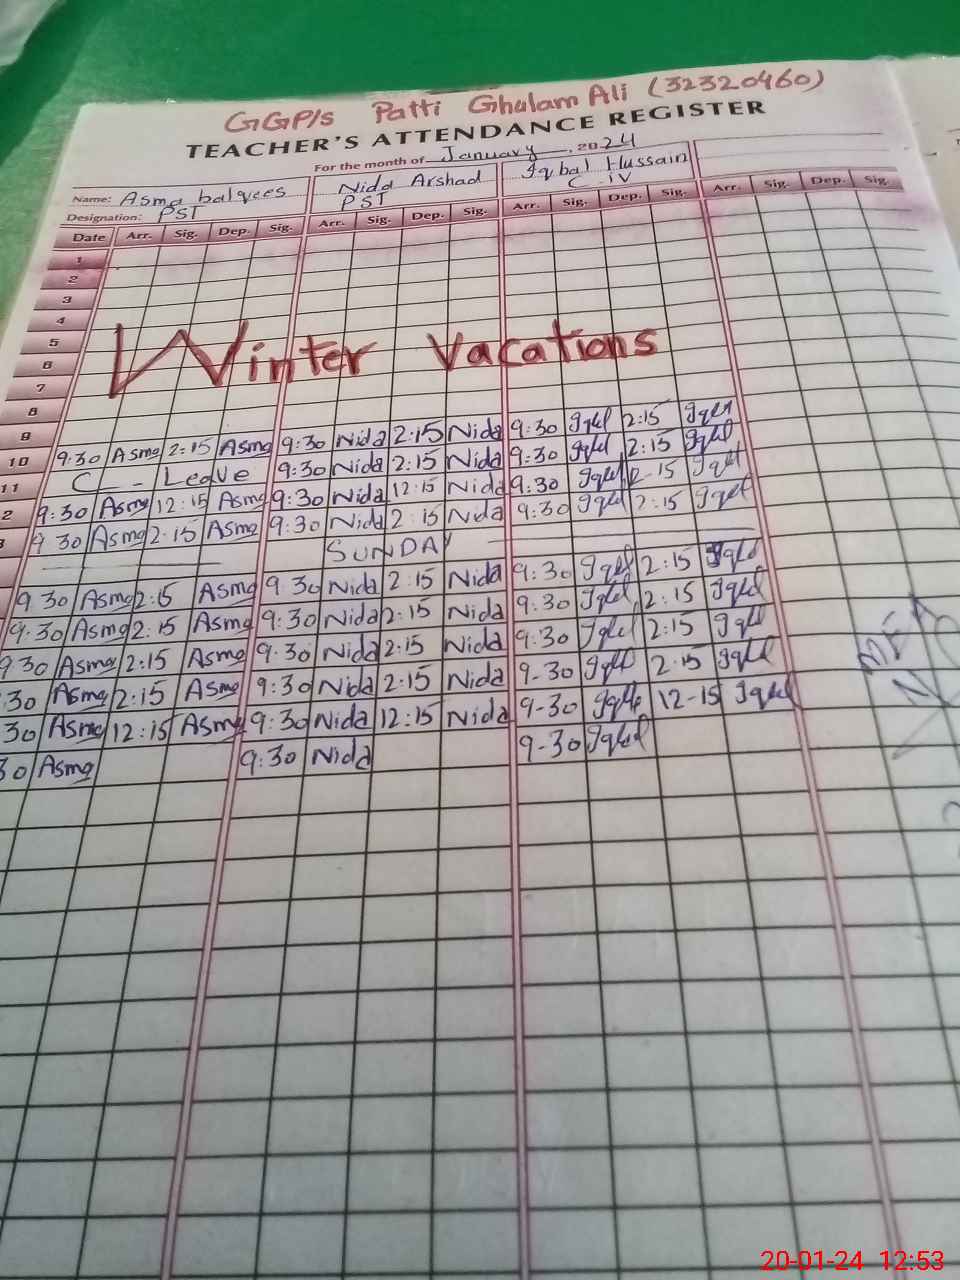 GGP/s Patti Ghulam Ali (32320460)
TEACHER'S ATTENDANCE REGISTER
For the month of January, 2024
Name: Asma balqees Nida Arshad Iqbal Hussain
Designation: PST PST C-IV
Date Arr. Sig. Dep. Sig. Arr. Sig. Dep. Sig. Arr. Sig. Dep. Sig. Arr. Sig. Dep. Sig.
1
2
3
4
5
6
7
Winter Vacations
8
9
10 9:30 Asma 2:15 Asma 9:30 Nida 2:15 Nida 9:30 Iqbl 2:15 Iqbl
11 C - Leave 9:30 Nida 2:15 Nida 9:30 Iqbl 2:15 Iqbl
2 9:30 Asma 12:15 Asma 9:30 Nida 12:15 Nida 9:30 Iqbl 2-15 Iqbl
3 9 30 Asma 2:15 Asma 9:30 Nida 2:15 Nida 9:30 Iqbl 2:15 Iqbl
SUNDAY
9 30 Asma 2:15 Asma 9:30 Nida 2:15 Nida 9:30 Iqbl 2:15 Iqbl
9:30 Asma 2:15 Asma 9:30 Nida 2:15 Nida 9:30 Iqbl 2:15 Iqbl
930 Asma 2:15 Asma 9:30 Nida 2:15 Nida 9:30 Iqbl 2:15 Iqbl
:30 Asma 2:15 Asma 9:30 Nida 2:15 Nida 9-30 Iqbl 2:15 Iqbl
30 Asma 12:15 Asma 9:30 Nida 12:15 Nida 9-30 Iqbl 12-15 Iqbl
30 Asma 9:30 Nida 9-30 Iqbl
20-01-24 12:53